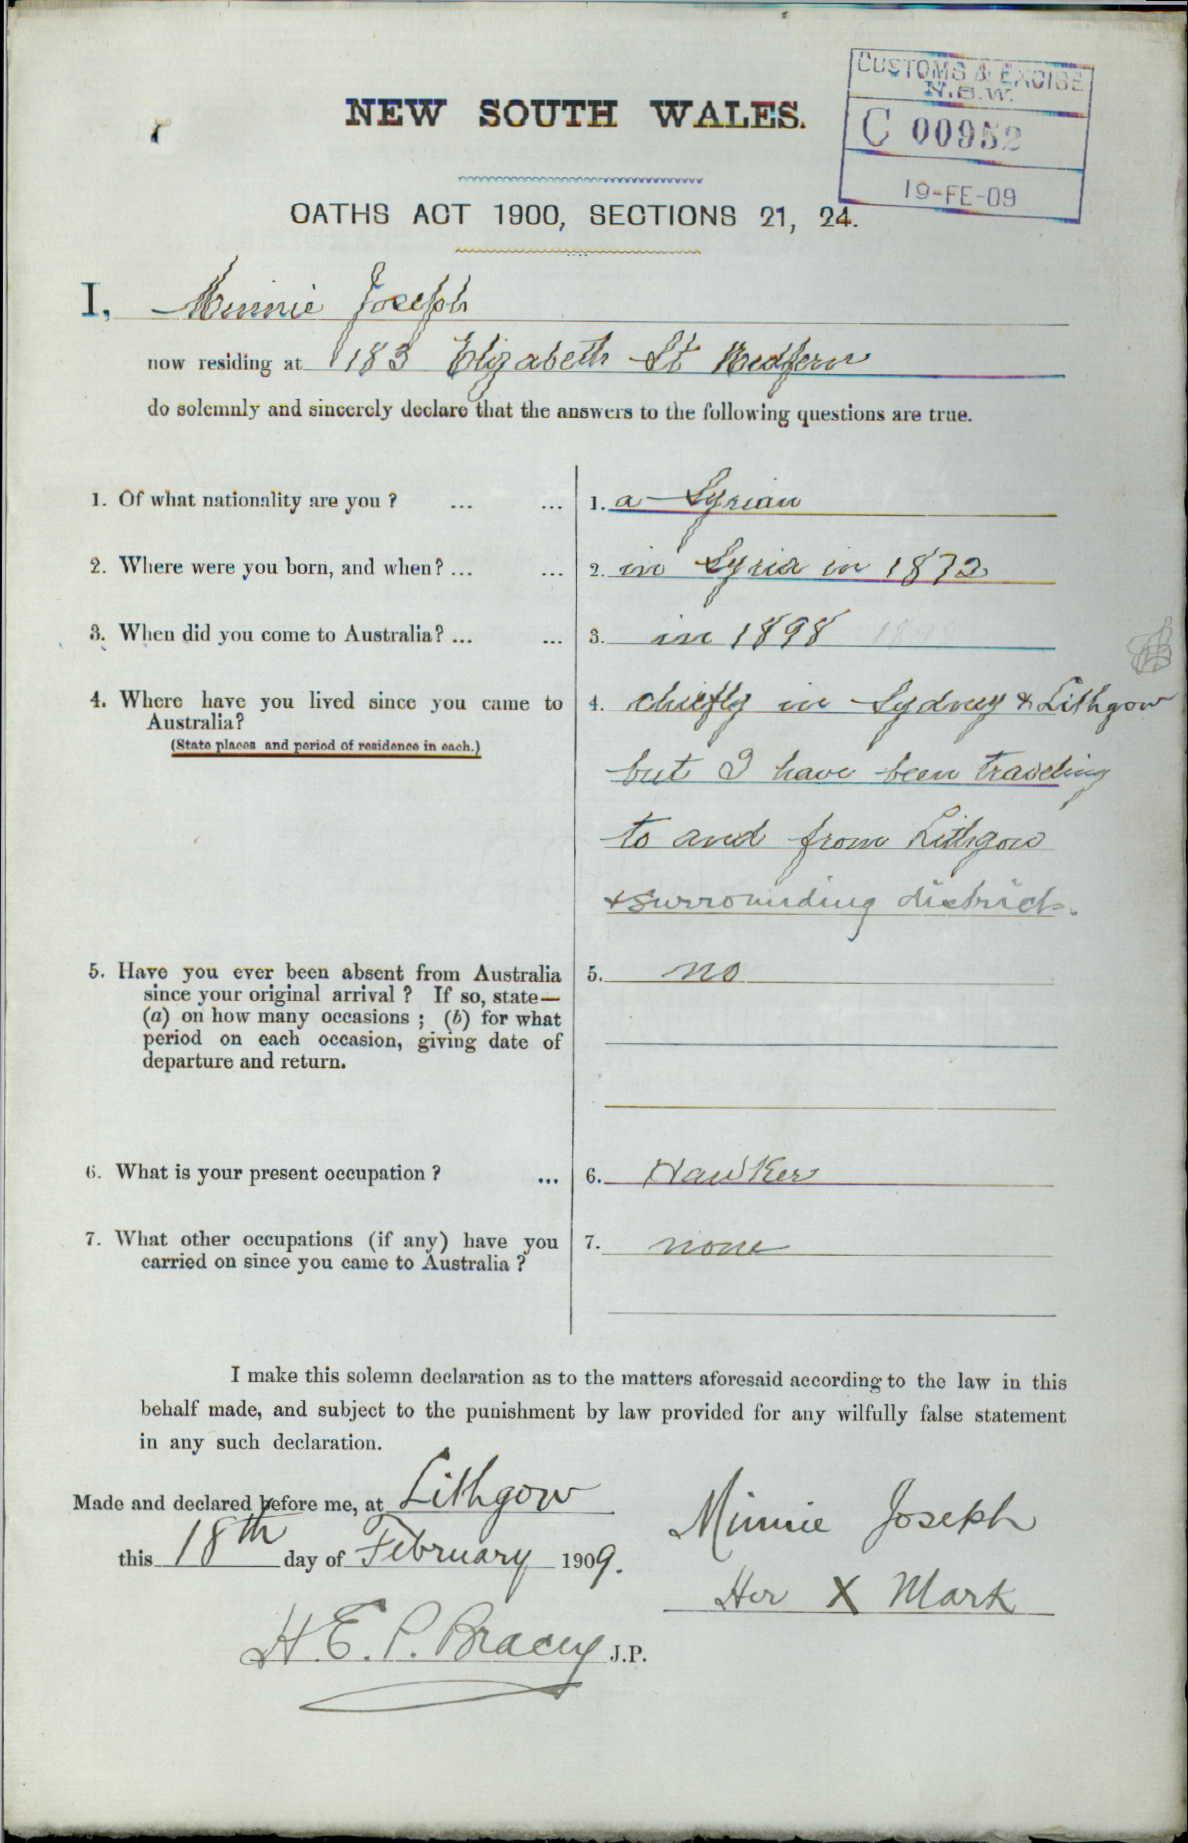 CUSTOMS & EXCISE
N.S.W.
C 00952
19-FE-09
NEW SOUTH WALES.
OATHS ACT 1900, SECTIONS 21, 24.
I, Minnie Joseph
now residing at 183 Elizabeth St Redfern
do solemnly and sincerely declare that the answers to the following questions are true.
1. Of what nationality are you ? ... ... 1. a Syrian
2. Where were you born, and when? ... ... 2. in Syria in 1872
3. When did you come to Australia? ... ... 3. in 1898 1898
4. Where have you lived since you came to 4. chiefly in Sydney & Lithgow
Australia?
(State places and period of residence in each.)
but I have been traveling
to and from Lithgow
& surrounding districts.
5. Have you ever been absent from Australia 5. no
since your original arrival ? If so, state—
(a) on how many occasions ; (b) for what
period on each occasion, giving date of
departure and return.
6. What is your present occupation ? ... 6. Hawker
7. What other occupations (if any) have you 7. none
carried on since you came to Australia ?
I make this solemn declaration as to the matters aforesaid according to the law in this
behalf made, and subject to the punishment by law provided for any wilfully false statement
in any such declaration.
Made and declared before me, at Lithgow
this 18th day of February 1909.
Minnie Joseph
Her X Mark
H. E. P. Bracey J.P.